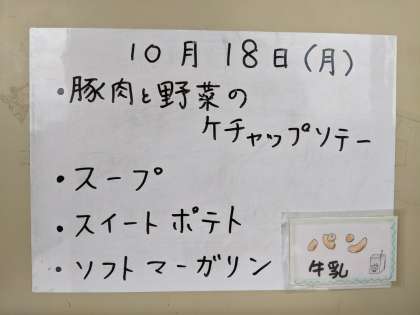 10月18日(月)
・豚肉と野菜の
ケチャップソテー
・スープ
・スイートポテト
・ソフトマーガリン
パン
牛乳